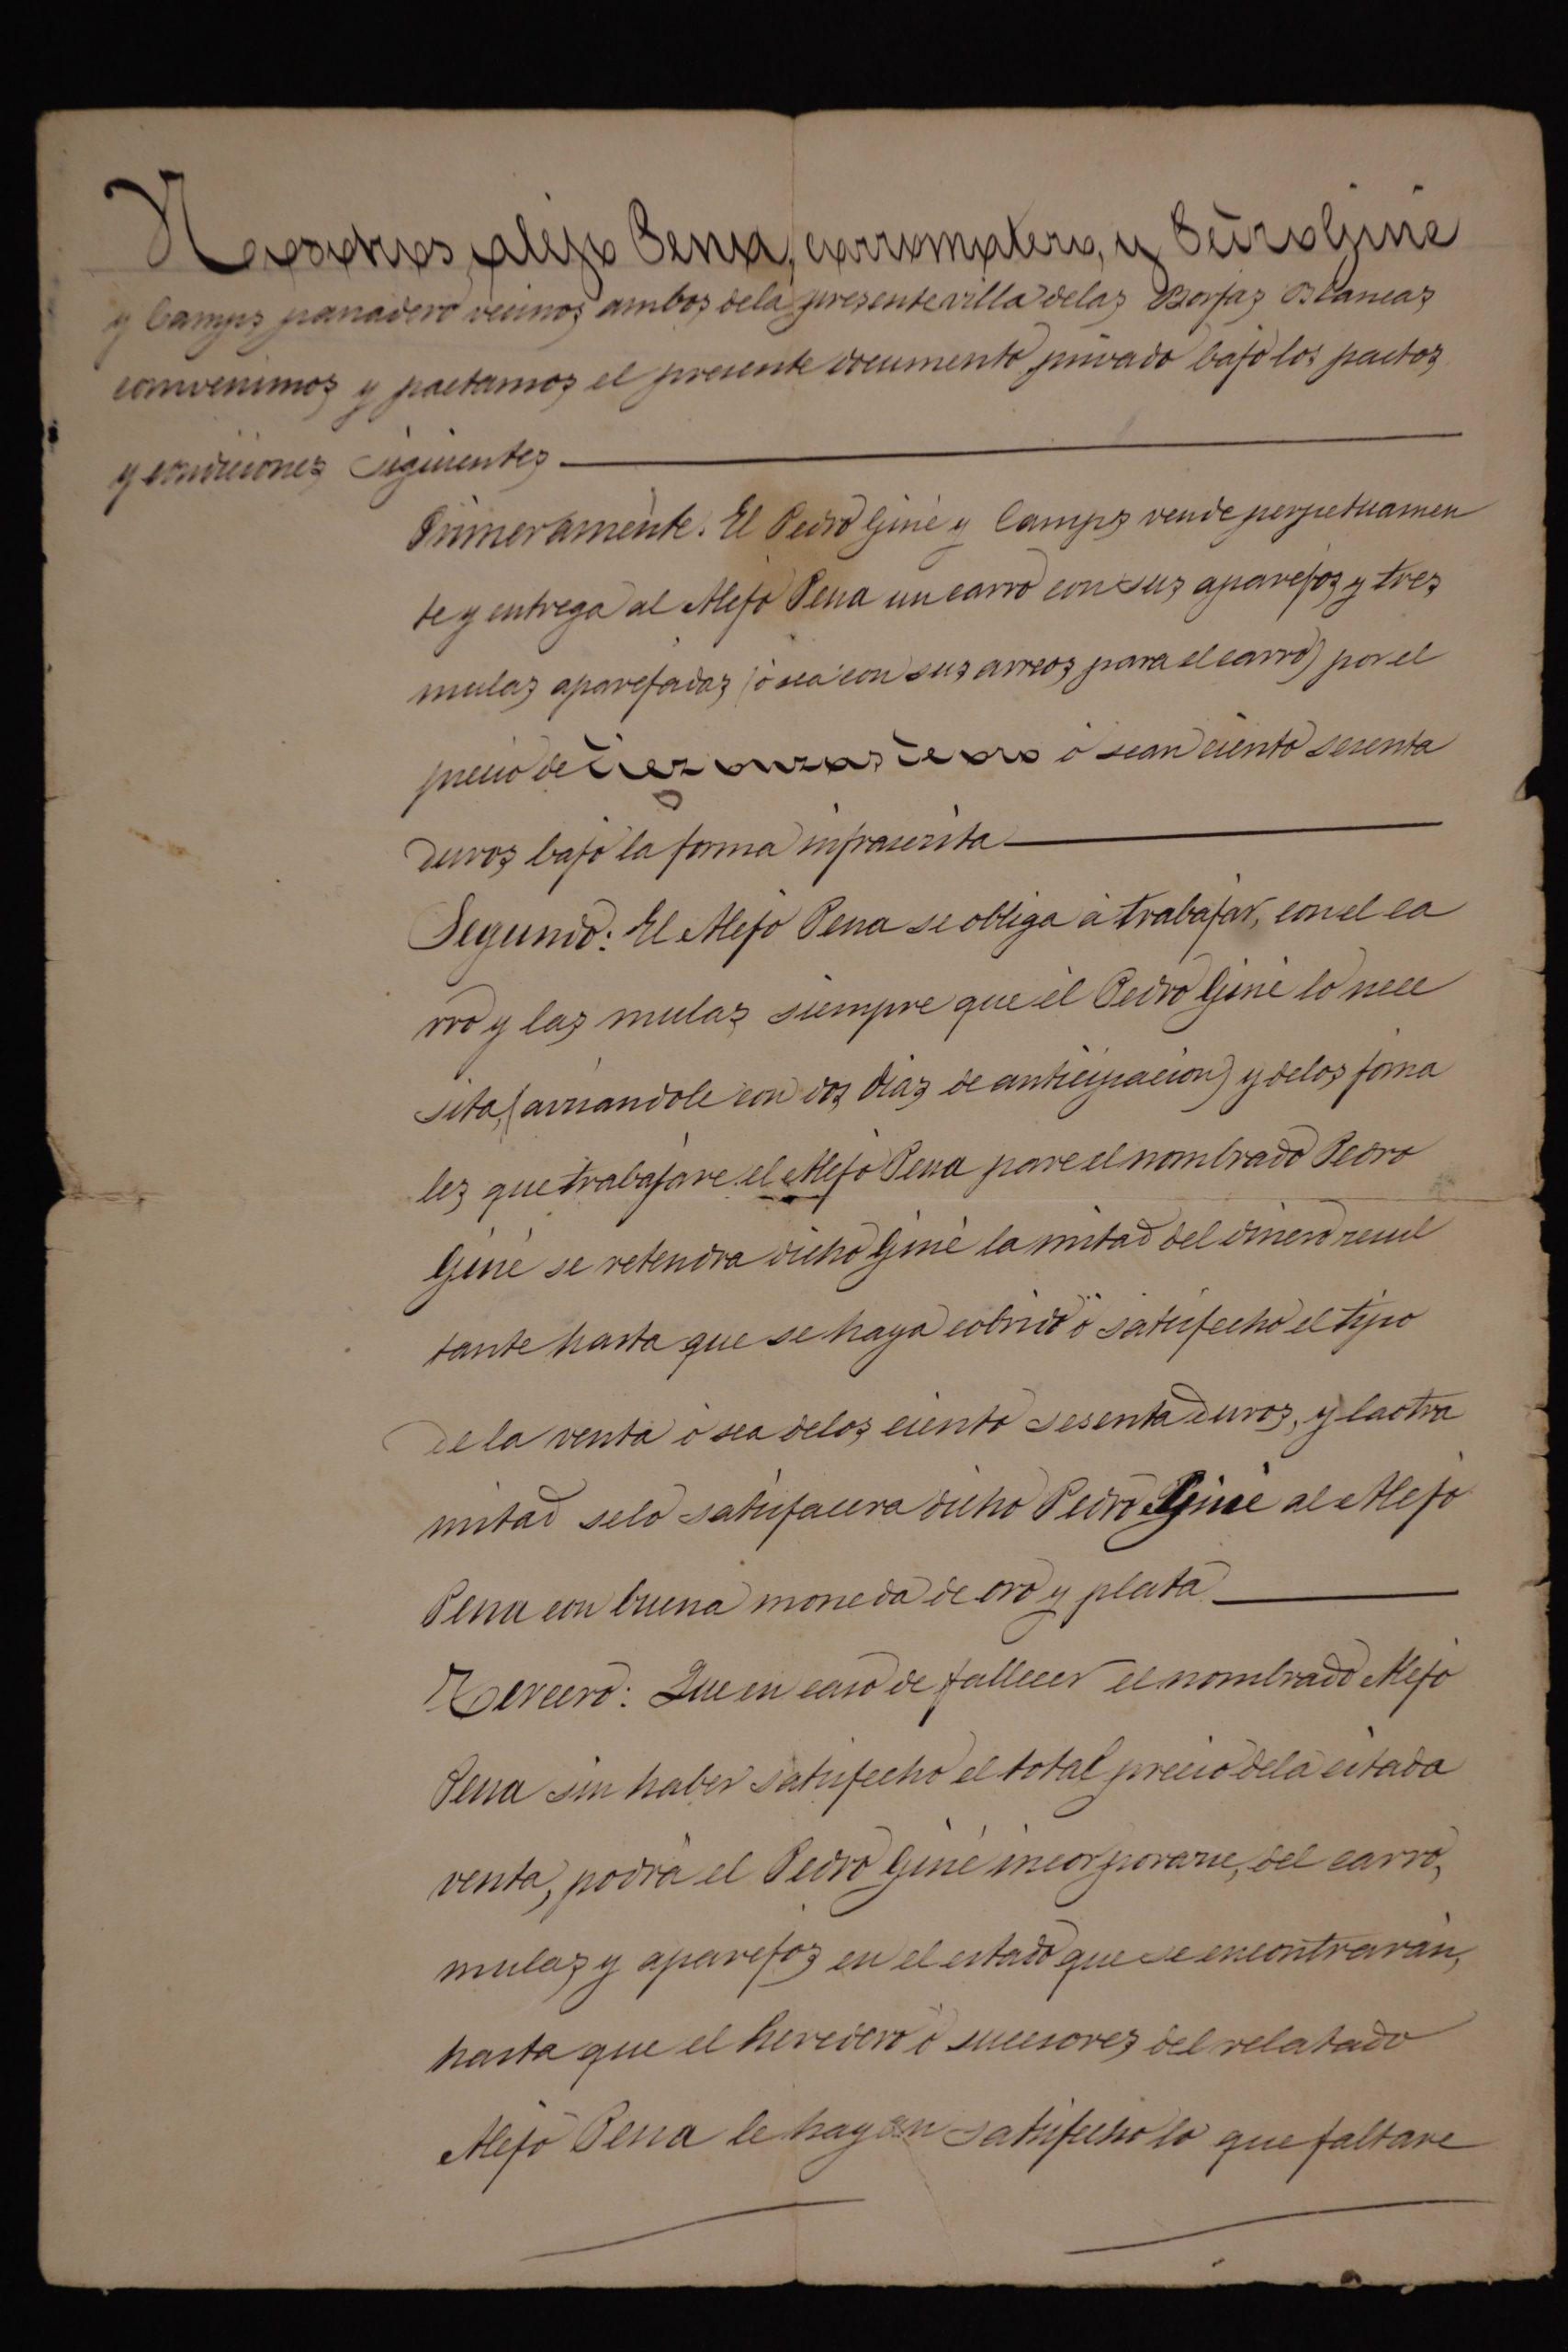 Nosotros, Alejo Pena, carromatero, y Pedro Giné
y Camps panadero vecinos ambos dela presente villa delas Borjas Blancas
convenimos y pactamos el presente documento privado bajo los pactos
y condiciones siguientes
Primeramente. El Pedro Giné y Camps vende perpetuamen
te y entrega al Alejo Pena un carro con sus aparejos y tres
mulas aparejadas (ó sea con sus arreos para el carro) por el
precio de diez onzas de oro ó sean ciento sesenta
duros bajo la forma infrascrita
Segundo: El Alejo Pena se obliga á trabajar, con el ca
rro y las mulas siempre que el Pedro Giné lo nece
sita, (avisandole con dos dias de anticipacion) y delos jorna
les que trabajare el Alejo Pena pare el nombrado Pedro
Giné se retendra dicho Giné la mitad del dinero resul
tante hasta que se haya cobrido ó satisfecho el tipo
de la venta ó sea delos ciento sesenta duros, y la otra
mitad selo satisfacera dicho Pedro Giné al Alejo
Pena con buena moneda de oro y plata
Tercero: Que en caso de fallecer el nombrado Alejo
Pena sin haber satisfecho el total precio dela citada
venta, podrá el Pedro Giné incorporarse, del carro,
mulas y aparejos en el estado que se encontrarán,
hasta que el heredero ó sucesores del relatado
Alejo Pena le hayan satisfecho lo que faltare